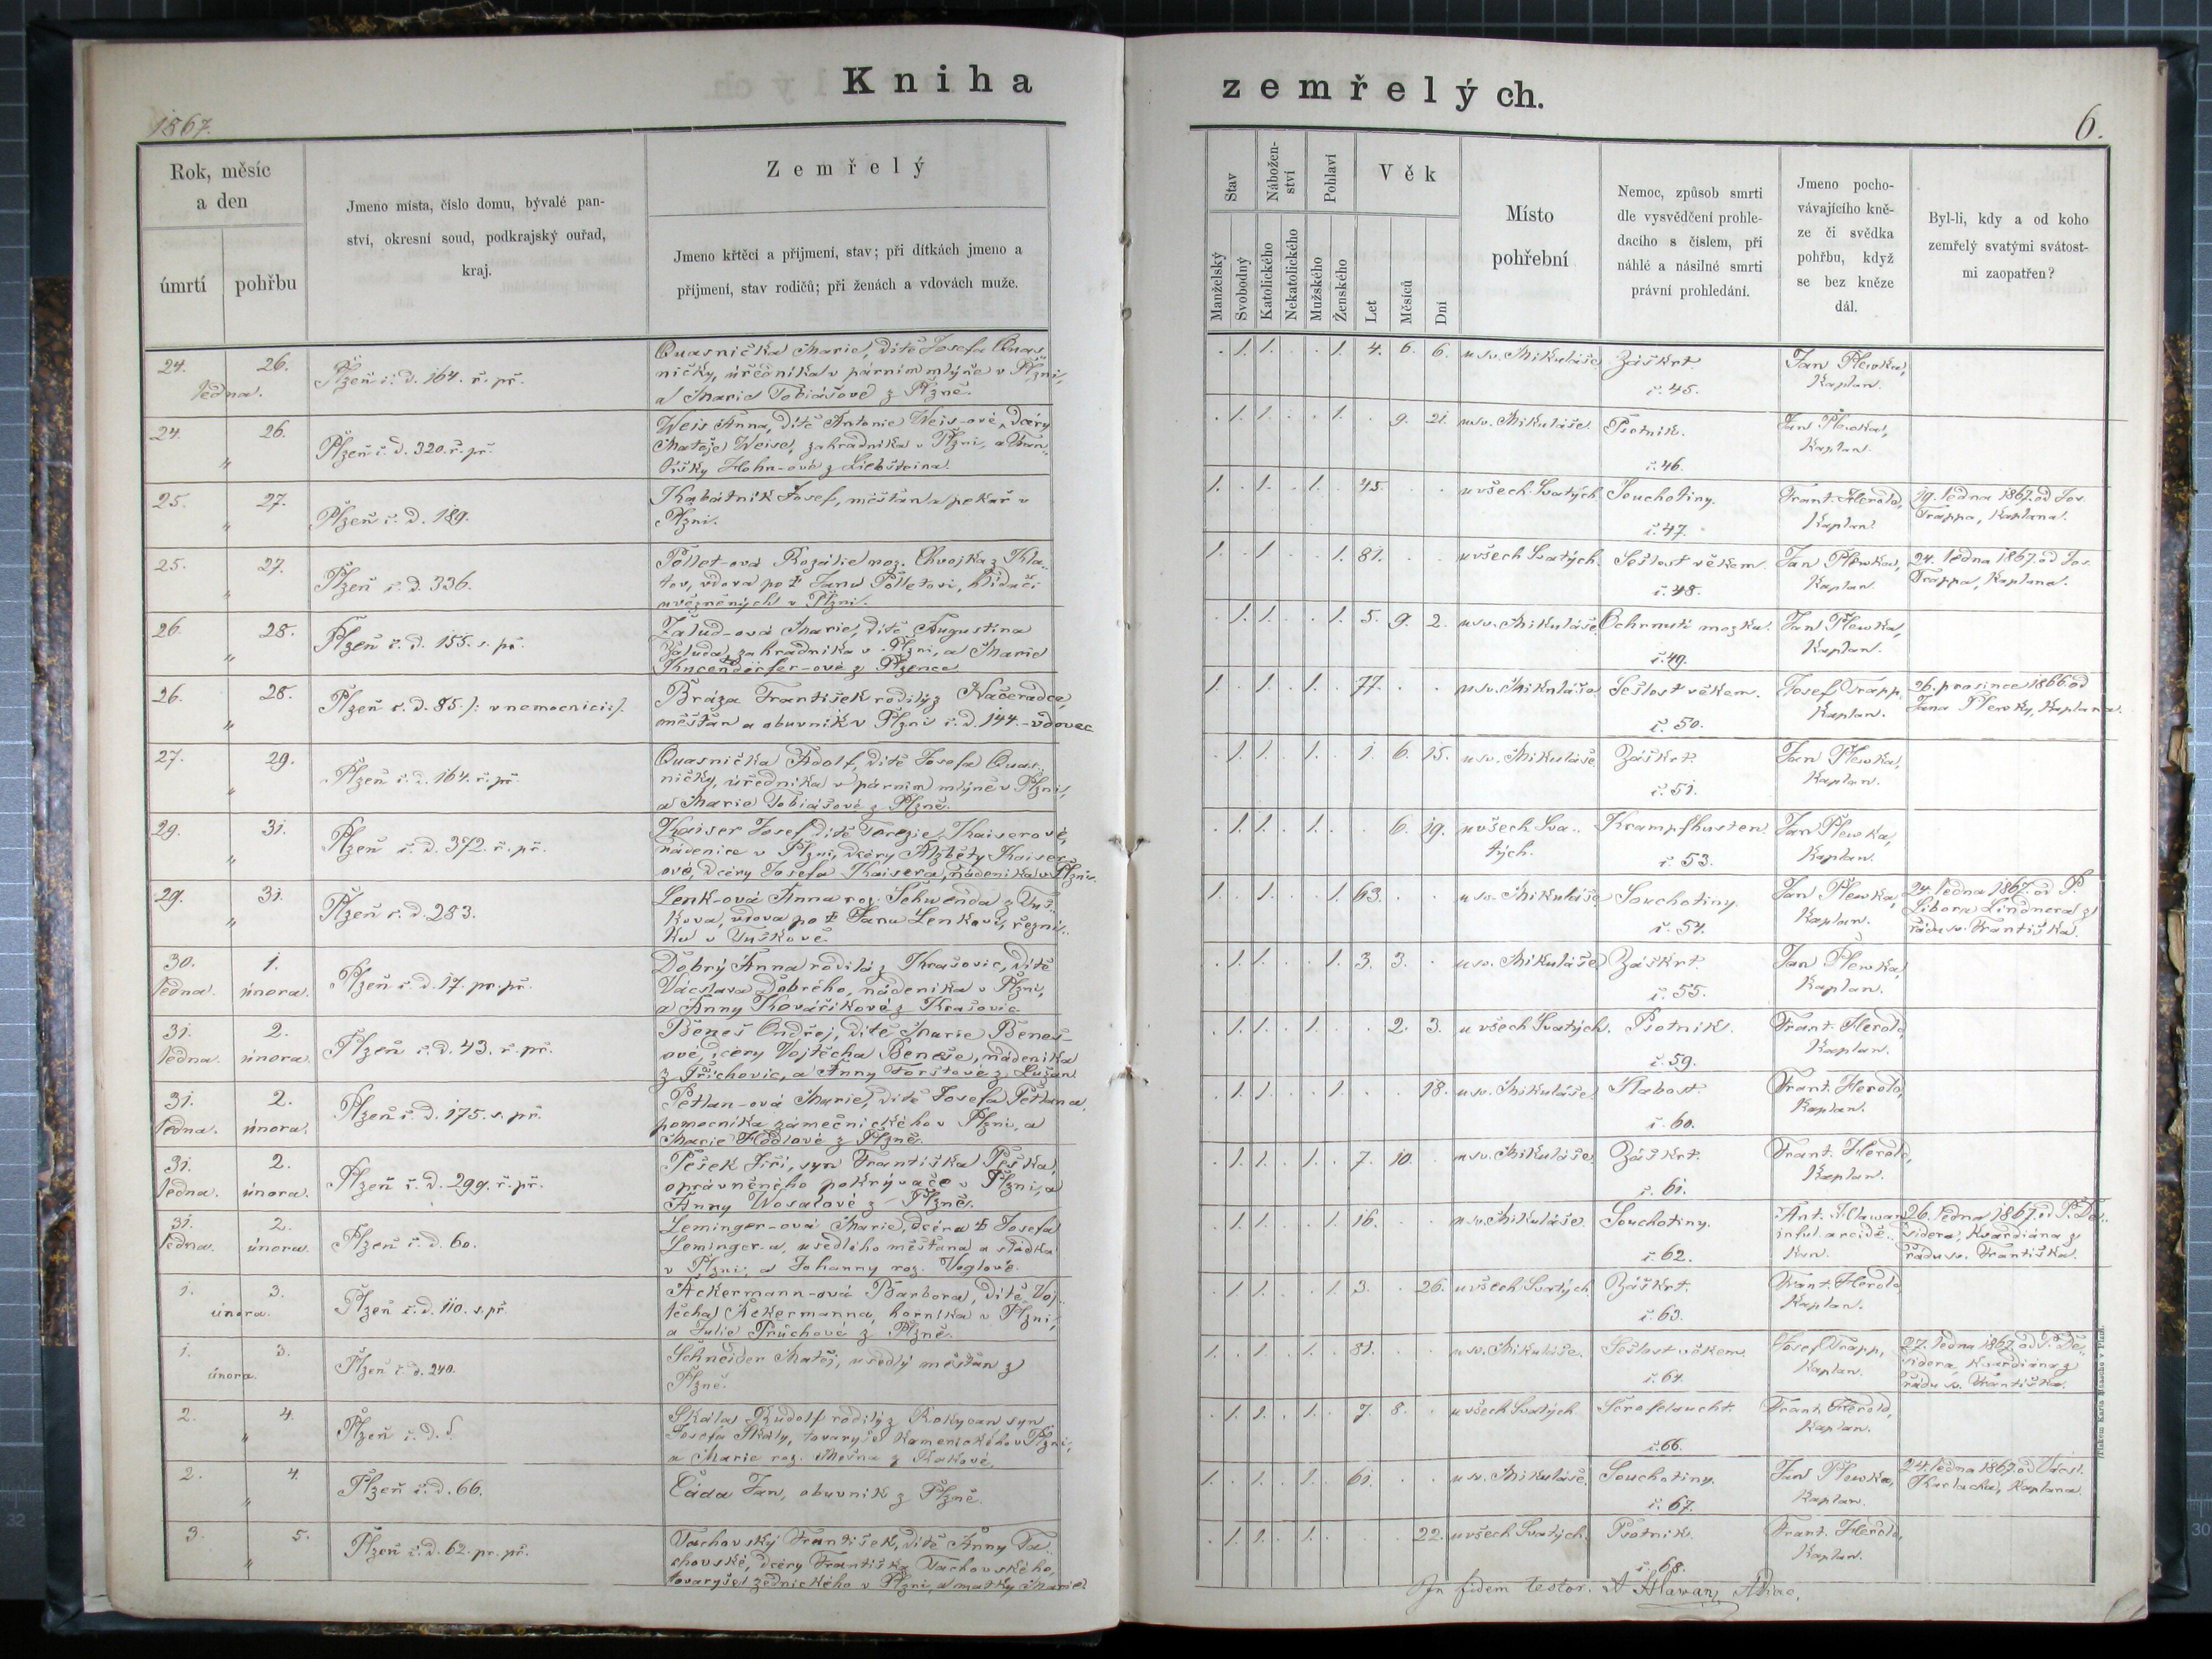 Kniha
zemřelých.
1867.
6.
Rok, měsíc
a den
úmrtí
pohřbu
Jmeno místa, číslo domu, bývalé pan-
ství, okresní soud, podkrajský ouřad,
kraj.
Zemřelý
Jmeno křtěcí a příjmení, stav; při dítkách jmeno a
příjmení, stav rodičů; při ženách a vdovách muže.
Stav
Nábožen-
ství
Pohlaví
Věk
Manželský
Svobodný
Katolického
Nekatolického
Mužského
Ženského
Let
Měsíců
Dní
Místo
pohřební
Nemoc, způsob smrti
dle vysvědčení prohle-
dacího s číslem, při
náhlé a násilné smrti
právní prohledání.
Jmeno pocho-
vávajícího kně-
ze či svědka
pohřbu, když
se bez kněze
dál.
Byl-li, kdy a od koho
zemřelý svatými svátost-
mi zaopatřen?
24. 26.
ledna.
Plzeň č. d. 164. ř. př.
Quasnička Marie, dítě Josefa Quas-
ničky, úředníka v parním mlýně v Plzni,
a Marie Tobiášové z Plzně.
. 1. 1. . . 1. 4. 6. 6. u sv. Mikuláše Záškrt. č. 45.
Jan Plewka,
Kaplan.
24. 26.
"
Plzeň č. d. 320. ř. př.
Weis Anna, dítě Antonie Weis-ové, dcery
Matěje Weise, zahradníka v Plzni, a Fran-
tišky Hohn-ové z Liebšteina.
. 1. 1. . . 1. . 9. 21. u sv. Mikuláše. Psotník. č. 46.
Jan Plewka,
Kaplan.
25. 27.
"
Plzeň č. d. 189.
Kabátník Josef, měšťan a pekař v
Plzni.
1. . 1. . 1. . 45. . . u všech Svatých Souchotiny. č. 47.
Frant. Herold,
Kaplan.
19. ledna 1867. od Jos.
Trappa, Kaplana.
25. 27.
"
Plzeň č. d. 336.
Pollet-ová Rozálie roz. Chvojka z Kla-
tov, vdova po ✝ Janu Polletovi, hlídači
uvězněných v Plzni.
1. . 1. . . 1. 81. . . u všech Svatých. Sešlost věkem. č. 48.
Jan Plewka,
Kaplan.
24. ledna 1867. od Jos.
Trappa, Kaplana.
26. 28.
"
Plzeň č. d. 155. s. př.
Žalud-ová Marie, dítě Augustina
Žaluda, zahradníka v Plzni, a Marie
z Plzence
. 1. 1. . . 1. 5. 9. 2. u sv. Mikuláše. Ochrnutí mozku. č. 49.
Jan Plewka,
Kaplan.
26. 28.
"
Plzeň č. d. 85. /: v nemocnici :/.
Bráza František rodilý z Načeradce,
měšťan a obuvník v Plzni č. d. 144. - vdovec
1. . 1. . 1. . 77. . . u sv. Mikuláše Sešlost věkem. č. 50.
Josef Trapp,
Kaplan.
26. prosince 1866 od
Jana Plewky, Kaplana.
27. 29.
"
Plzeň č. d. 164. ř. př.
Quasnička Adolf, dítě Josefa Quas-
ničky, úředníka v parním mlýně v Plzni,
a Marie Tobiášové z Plzně.
. 1. 1. . 1. . 1. 6. 15. u sv. Mikuláše Záškrt. č. 51.
Jan Plewka,
Kaplan.
29. 31.
"
Plzeň č. d. 372. ř. př.
Kaiser Josef, dítě Terezie Kaiserové,
nádenice v Plzni, dcery Alžběty Kaiser-
ové, dcery Josefa Kaisera, nádeníka v Plzni.
. 1. 1. . 1. . . 6. 19. u všech Sva-
tých. Krampfhusten č. 53.
Jan Plewka,
Kaplan.
29. 31.
"
Plzeň č. d. 283.
Lenk-ová Anna roz. Schwenda z Tuš-
kova, vdova po ✝ Janu Lenkovi, řezní-
ku v Tuškově.
1. . 1. . . 1. 63. . . u sv. Mikuláše Souchotiny. č. 54.
Jan Plewka,
Kaplan.
24. ledna 1867. od P.
Libora Lindnera z
řádu sv. Františka.
30. 1.
ledna. února.
Plzeň č. d. 17 pr. př.
Dobrý Anna rodilá z Krašovic, dítě
Václava Dobrého, nádeníka v Plzni,
a Anny Kovaříkové z Krašovic
. 1. 1. . . 1. 3. 3. . u sv. Mikuláše Záškrt. č. 55.
Jan Plewka,
Kaplan.
31. 2.
ledna. února.
Plzeň č. d. 43. ř. př.
Beneš Ondřej, dítě Marie Beneš-
ové, dcery Vojtěcha Beneše, nádeníka
z Příchovic, a Anny Forstové z Lužan
. 1. 1. . 1. . . 2. 3. u všech Svatých. Psotník. č. 59.
Frant. Herold,
Kaplan.
31. 2.
ledna. února.
Plzeň č. d. 175. s. př.
Petlan-ová Marie, dítě Josefa Petlana,
pomocníka zámečnického v Plzni, a
Marie z Plzně.
. 1. 1. . . 1. . . 18. u sv. Mikuláše Slabost. č. 60.
Frant. Herold,
Kaplan.
31. 2.
ledna. února.
Plzeň č. d. 299. ř. př.
Pešek Jiří, syn Františka Peška,
oprávněného pokrývače v Plzni, a
Anny Wosalové z Plzně.
. 1. 1. . 1. . 7. 10. . u sv. Mikuláše. Záškrt. č. 61.
Frant. Herold,
Kaplan.
31. 2.
ledna. února.
Plzeň č. d. 60.
Leminger-ová Marie, dcera ✝ Josefa
Leminger-a, usedlého měšťana a sládka
v Plzni, a Johanny roz. Voglové.
. 1. 1. . . 1. 16. . . u sv. Mikuláše. Souchotiny. č. 62.
Ant. Hlawan
inful. arcidě-
kan.
26. ledna 1867. od P. De-
sidera, Kvardiána z
řádu sv. Františka.
1. 3.
února.
Plzeň č. d. 110. s. př.
Ackermann-ová Barbora, dítě Voj-
těcha Ackermanna, horníka v Plzni,
a Julie Průchové z Plzně.
. 1. 1. . . 1. 3. . 26. u všech Svatých. Záškrt. č. 63.
Frant. Herold,
Kaplan.
1. 3.
února.
Plzeň č. d. 240.
Schneider Matěj, usedlý měšťan z
Plzně.
1. . 1. . 1. . 81. . . u sv. Mikuláše. Sešlost věkem. č. 64.
Josef Trapp,
Kaplan.
27. ledna 1867. od P. De-
sidera, Kvardiána z
řádu sv. Františka.
2. 4.
"
Plzeň č. d.
Skála Rudolf rodilý z Rokycan syn
Josefa Skály, tovaryše kamenického v Plzni,
a Marie roz.
. 1. 1. . 1. . 7. 8. . u všech Svatých. č. 66.
Frant. Herold,
Kaplan.
2. 4.
"
Plzeň č. d. 66.
Čada Jan, obuvník z Plzně.
1. . 1. . 1. . 61. . . u sv. Mikuláše. Souchotiny. č. 67.
Jan Plewka,
Kaplan.
24. ledna 1867. od Václ.
Karlacha, Kaplana.
3. 5.
"
Plzeň č. d. 62. pr. př.
Tachovský František, dítě Anny Ta-
chovské, dcery Františka Tachovského,
tovaryše zednického v Plzni, a matky Marie
. 1. 1. . 1. . . . 22. u všech Svatých. Psotník. č. 68.
Frant. Herold,
Kaplan.
In fidem testor. A Hlawan,
Tiskem Karla Maasche v Plzni.